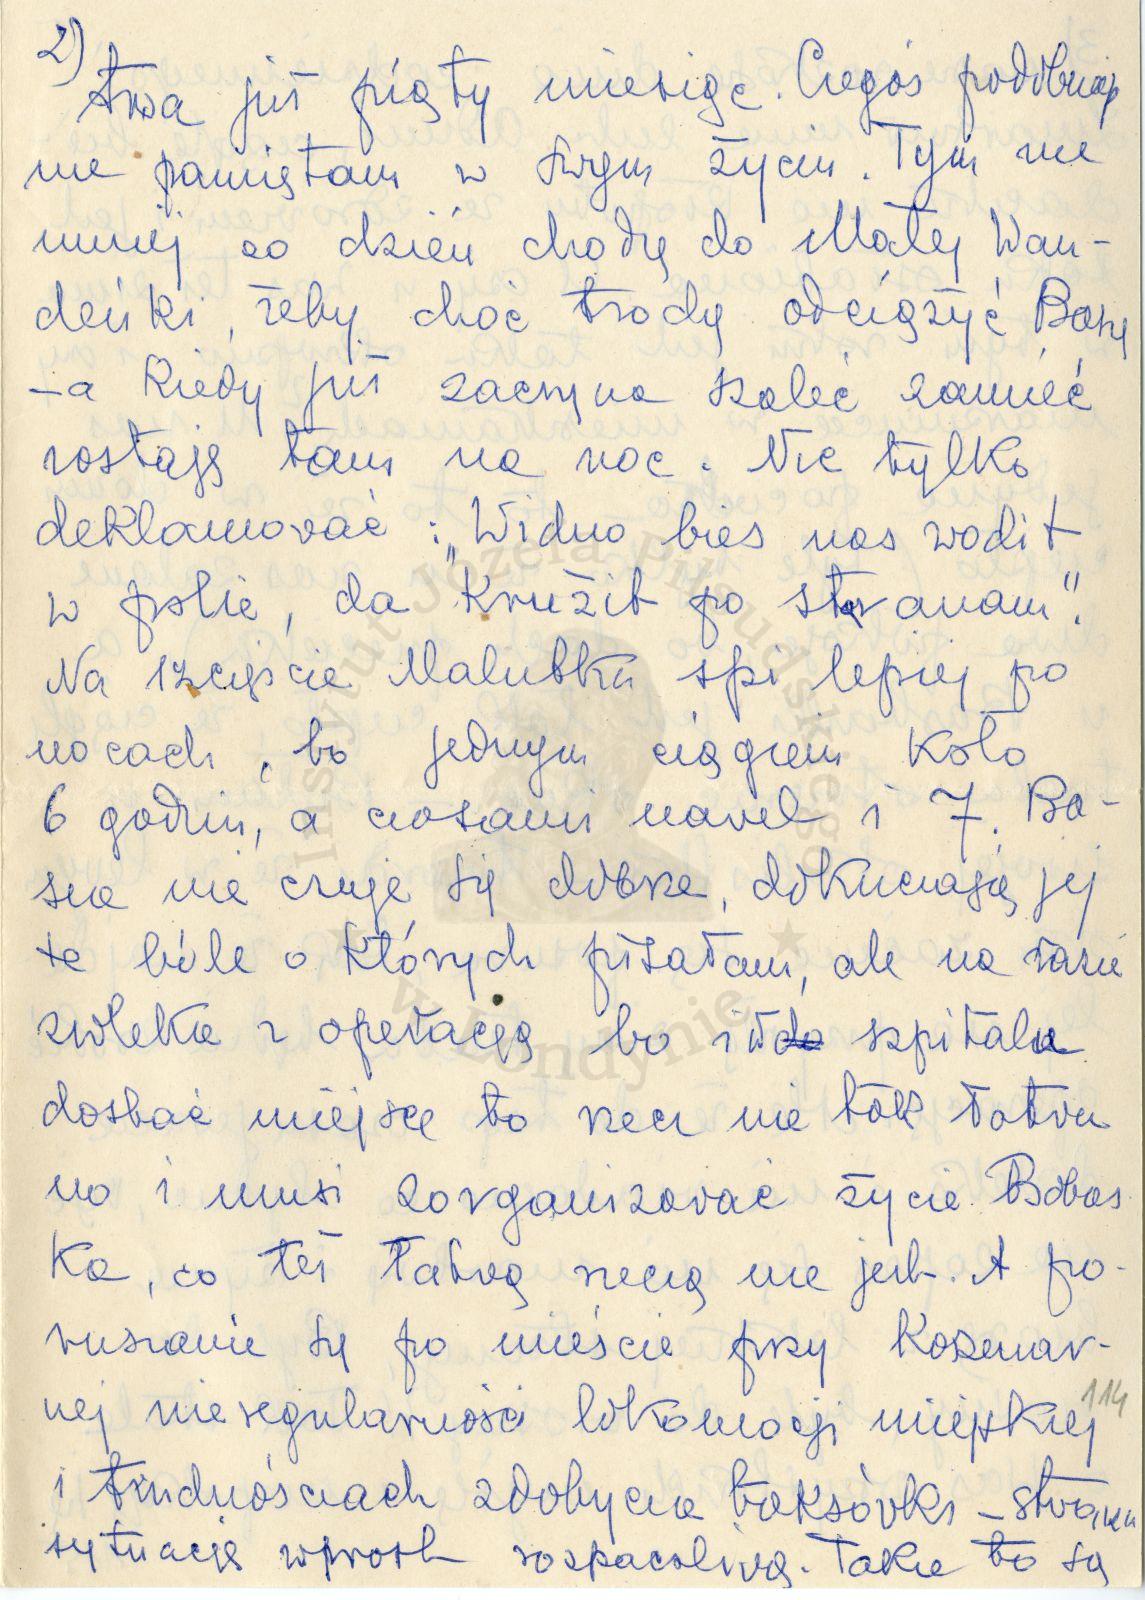 2)
trwa już piąty miesiąc. Czegoś podobnego
nie pamiętam w swym życiu. Tym nie
mniej co dzień chodzę do Małej Wan-
deńki, żeby choć trochę odciążyć Basię
– a kiedy już zaczyna szaleć zamieć
zostaję tam na noc. Nic tylko
deklamować: „Widno bies nas wodit
w polie, da "kružit po storanam".
Na szczęście Malutka śpi lepiej po
nocach, bo jednym ciągiem koło
6 godzin, a czasami nawet i 7. Ba-
sia nie czuje się dobrze, dokuczają jej
te bóle o których pisałam, ale na razie
zwleka z operacją bo i w szpitalu
dostać miejsce to rzecz nie tak łatwa
no i musi zorganizować życie Bobas
ka, co też łatwą rzeczą nie jest. A po-
ruszanie się po mieście przy koszmar-
nej nieregularności lokomocji miejskiej
i trudnościach zdobycia taksówki – stwarza
sytuację wprost rozpaczliwą. Takie to są
114
Instytut Józefa Piłsudskiego
★ w Londynie ★